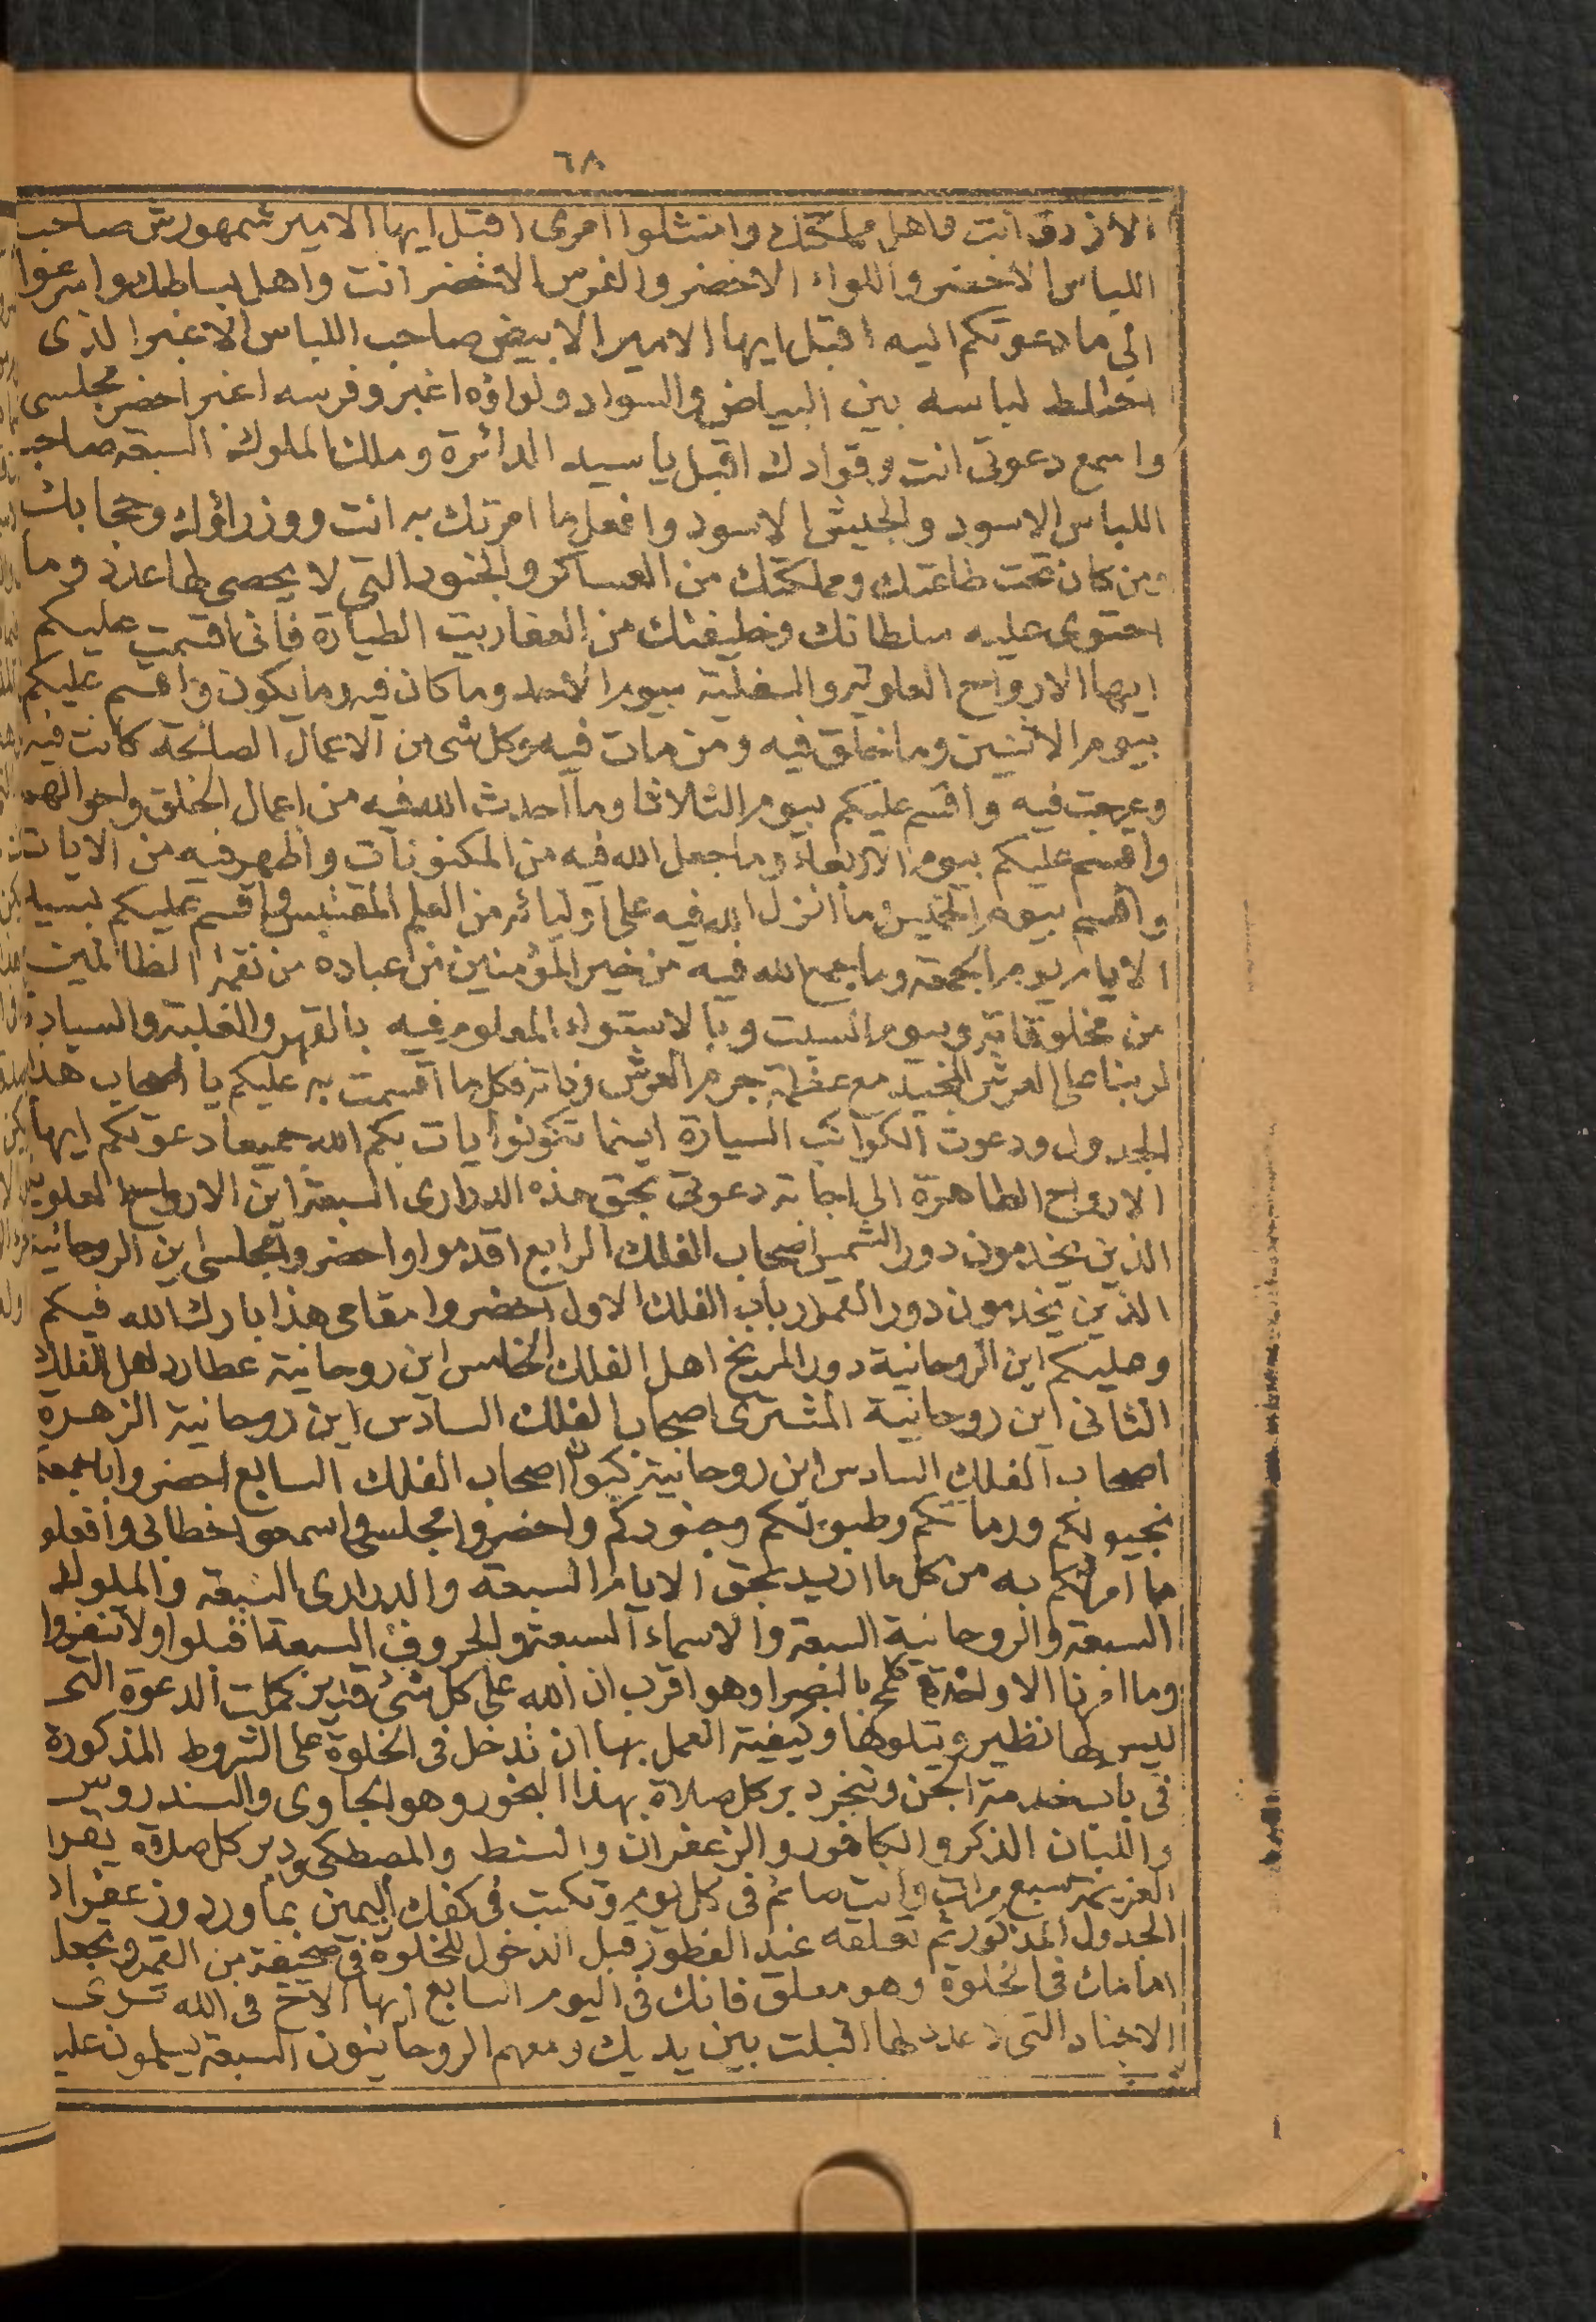 ٦٨
الازرق انت واهل مملكتك وامتثلوا امرى اقبل ايها الامير شمهورش صاحب
اللباس الاخضر واللواء الاخضر والفرس الاخضر انت واهل بساطك واسرعوا
الى ما دعوتكم اليه اقبل ايها الامير الابيض صاحب اللباس الاغبر الذى
اختلط لباسه بين البياض والسواد ولواؤه اغبر وفرسه اغبر احضر مجلسى
واسمع دعوتى انت وقوادك اقبل يا سيد الدائرة وملك الملوك السبعة صاحب
اللباس الاسود والجيش الاسود وافعل ما امرتك به انت ووزراؤك وحجابك
ومن كان تحت طاعتك ومملكتك من العساكر والجنود التى لا يحصى لها عدد وما
احتوى عليه سلطانك وخليفتك من العفاريت الطيارة فانى اقسمت عليكم
ايها الارواح العلوية والسفلية بيوم الاحد وما كان فيه وما يكون واقسم عليكم
بيوم الاثنين وما خلق فيه ومن مات فيه وكل شئ من الاعمال الصالحة كانت فيه
وعرجت فيه واقسم عليكم بيوم الثلاثا وما احدث الله فيه من اعمال الخلق واحوالهم
واقسم عليكم بيوم الاربعاء وما جعل الله فيه من المكنونات واظهر فيه من الايات
واقسم بيوم الخميس وما انزل الله فيه على اوليائه من العلم المقتبس واقسم عليكم بسيد
الايام يوم الجمعة وما جمع الله فيه من خير المؤمنين من عباده من نقمة الظالمين
من مخلوقاته وبيوم السبت وبالاستواء المعلوم فيه بالقهر والغلبة والسيادة
لربنا على العرش المجيد مع عظمة جرم العرش وذاته فكل ما اقسمت به عليكم يا اصحاب هذا
الجدول ودعوت الكواكب السيارة اينما تكونوا يات بكم الله جميعا دعوتكم ايها
الارواح الطاهرة الى اجابة دعوتى بحق هذه الدرارى السبعة اين الارواح العلوية
الذين يخدمون دور الشمس اصحاب الفلك الرابع اقدموا واحضروا مجلسى اين الروحانية
الذين يخدمون دور القمر ارباب الفلك الاول احضروا مقامى هذا بارك الله فيكم
وعليكم اين الروحانية دور المريخ اهل الفلك الخامس اين روحانية عطارد اهل الفلك
الثانى اين روحانية المشترى اصحاب الفلك السادس اين روحانية الزهرة
اصحاب الفلك السادس اين روحانية كيوان اصحاب الفلك السابع احضروا باجمعكم
بخيولكم ورماتكم وطبولكم وجنودكم واحضروا مجلسى واسمعوا خطابى وافعلو
ما امرتكم به من كل ما اريد بحق الايام السبعة والدرارى السبعة والملوك
السبعة والروحانية السبعة والاسماء السبعة والحروف السبعة اقبلوا ولا تنفروا
وما امرنا الا واحدة كلمح بالبصر او هو اقرب ان الله على كل شئ قدير كملت الدعوة التى
ليس لها نظير ويتلوها وكيفية العمل بها ان تدخل فى الخلوة على الشروط المذكورة
فى باب خدمة الجن وتبخر دبر كل صلاة بهذا البخور وهو الجاوى والسندروس
واللبان الذكر والكافور والزعفران والسنط والمصطكى ودبر كل صلاة تقرا
العزيمة سبع مرات وانت صائم فى كل يوم وتكتب فى كفك اليمين بماورد وزعفران
الجدول المذكور ثم تعلقه عند الفطور قبل الدخول للخلوة فى صحيفة من القمر وتجعل
امامك فى الخلوة وهو معلق فانك فى اليوم السابع ايها الاخ فى الله ترى
الاجناد التى لا عدد لها اقبلت بين يديك ومعهم الروحانيون السبعة يسلمون عليك